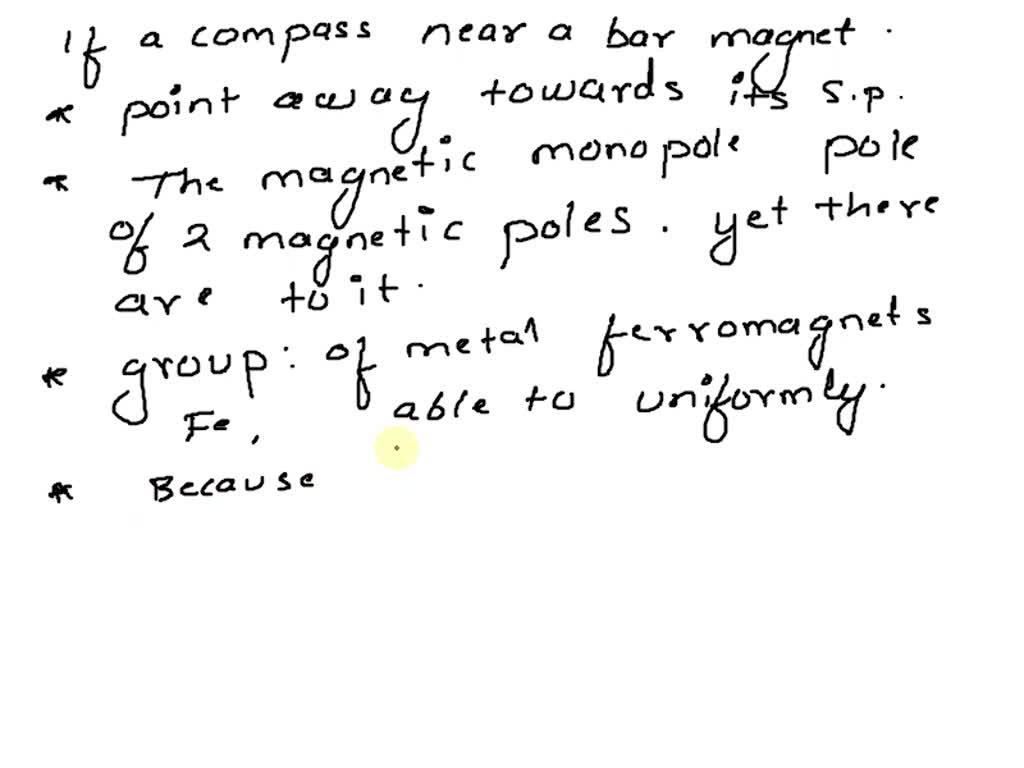 If a compass near a bar magnet.
* point away towards its s.p.
* The magnetic monopole pole
of 2 magnetic poles. yet there
are to it.
* group: of metal ferromagnets
Fe, able to uniformly.
* Because